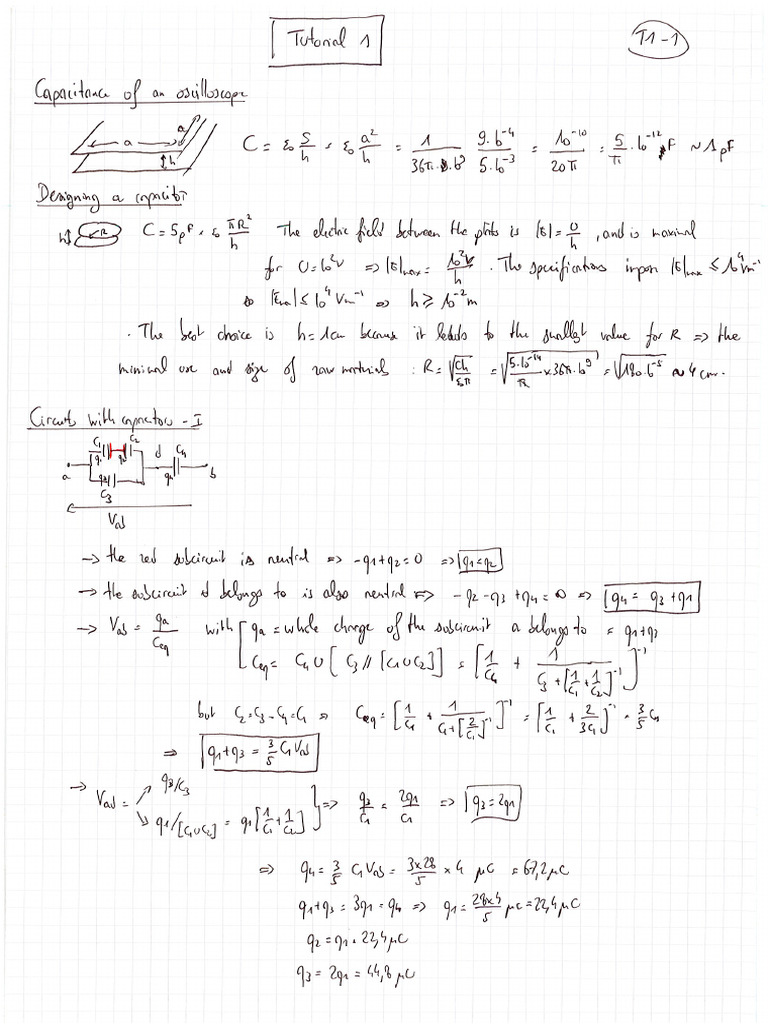 Tutorial 1
T1-1
Capacitance of an oscilloscope
a a h
C = ε₀ S/h = ε₀ a²/h = 1/(36π.10⁹) 9.10⁻⁴/5.10⁻³ = 10⁻¹⁰/20π = 5/π .10⁻¹² F ~ 1pF
Designing a capacitor
h R C = 5pF = ε₀ πR²/h The electric field between the plates is |E| = U/h, and is maximal
for U=10²V => |E|max = 10²V/h. The specifications impose |E|max ≤ 10⁴ Vm⁻¹
so |Emax| ≤ 10⁴ Vm⁻¹ => h ≥ 10⁻² m
. The best choice is h=1cm because it leads to the smallest value for R => the
minimal use and size of raw materials : R = √(Ch/ε₀π) = √(5.10⁻¹⁴/π × 36π.10⁹) = √(180.10⁻⁵) ≈ 4 cm.
Circuits with capacitors - I
C₁ C₂ d C₄
q₁ q₂ q₄
a q₃ b
C₃
Vab
-> the red subcircuit is neutral => -q1+q2=0 => q1=q2
-> the subcircuit d belongs to is also neutral => -q2-q3+q4=0 => q4 = q3+q1
-> Vab = qa/Ceq with qa = whole charge of the subcircuit a belongs to = q1+q3
Ceq = C4∪[C3//[C1∪C2]] = [1/C4 + 1/(C3+[1/C1+1/C2]⁻¹)]⁻¹
but C2=C3=C4=C1 => Ceq = [1/C1 + 1/(C1+[2/C1]⁻¹)]⁻¹ = [1/C1 + 2/3C1]⁻¹ = 3/5 C1
=> q1+q3 = 3/5 C1 Vab
-> Vad = q3/C3
q1/[C1∪C2] = q1[1/C1+1/C2] => q3/C1 = 2q1/C1 => q3=2q1
=> q4 = 3/5 C1 Vab = 3×28/5 × 4 μC = 67,2 μC
q1+q3 = 3q1 = q4 => q1 = 28×4/5 μC = 22,4 μC
q2 = q1 = 22,4 μC
q3 = 2q1 = 44,8 μC